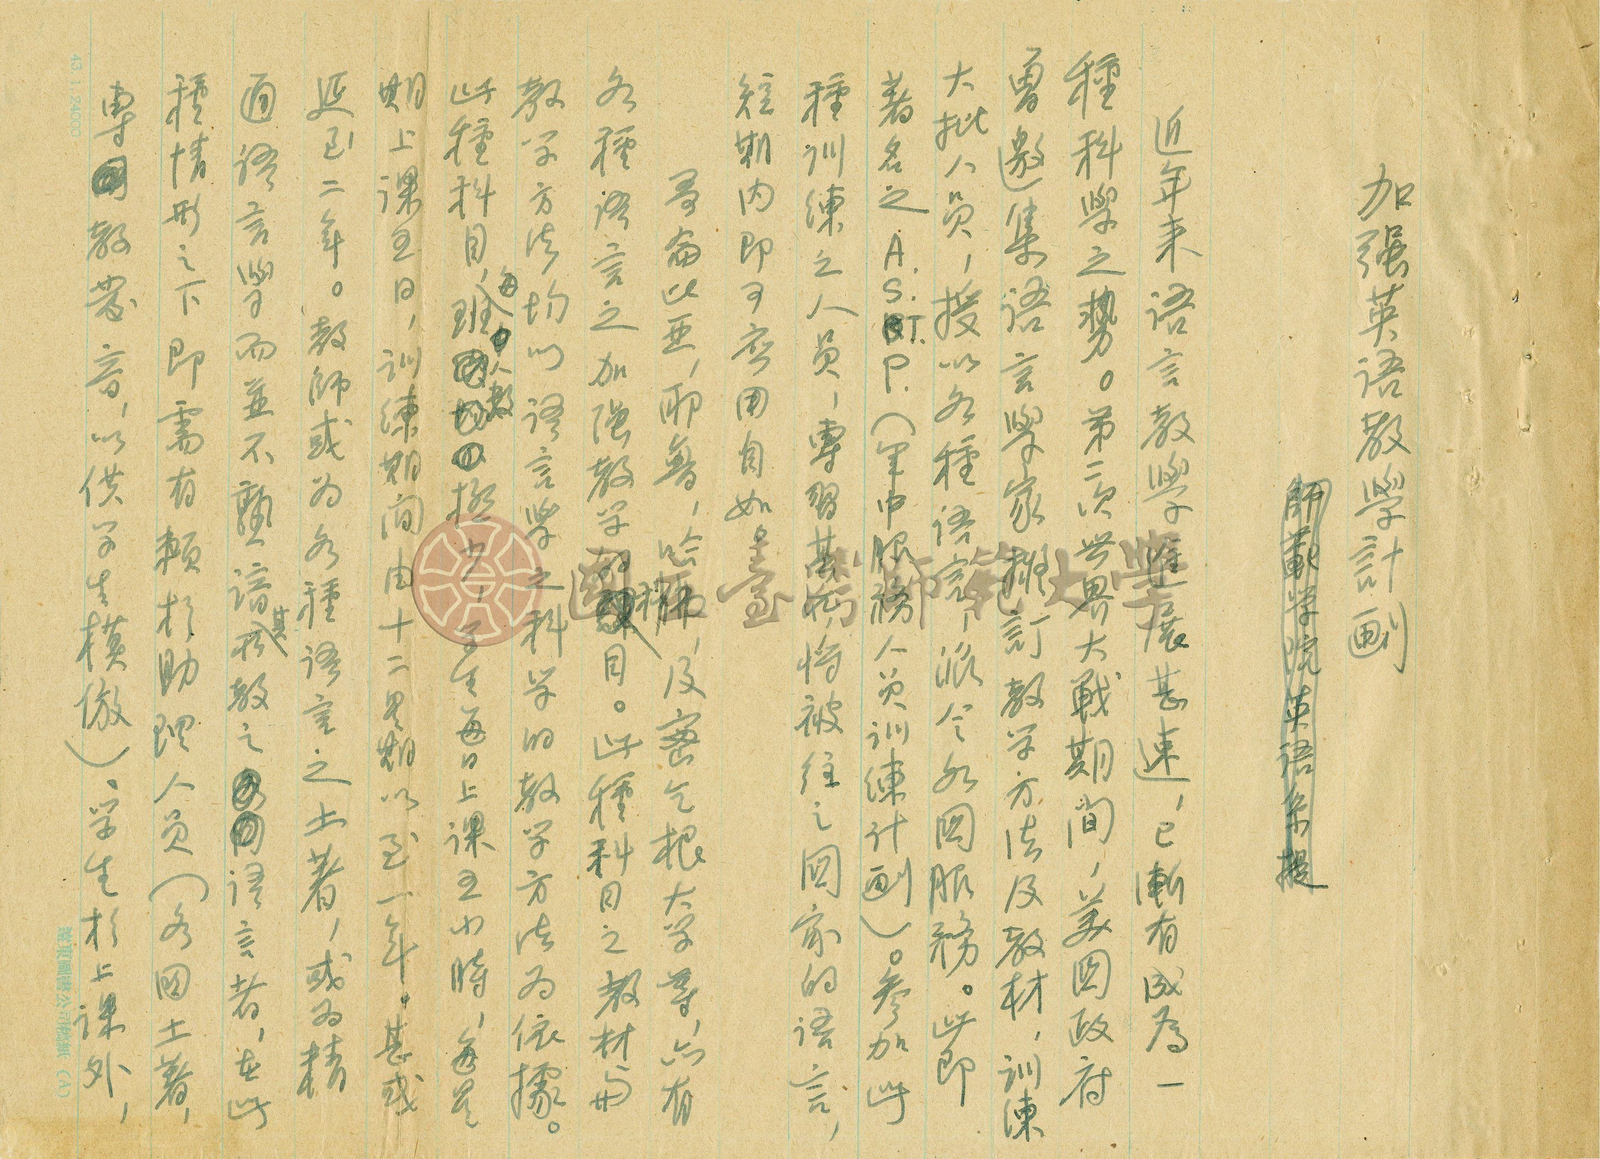 加强英語教學計劃
師範学院英語系提
近年来語言教學進展甚速，已漸有成為一
種科學之勢。第二次世界大戰期间，美国政府
曾邀集語言學家擬訂教学方法及教材，訓練
大批人員，授以各種語言，派令各国服務。此即
著名之 A.S.T.P.（軍中服務人員訓練计劃）。参加此
種訓練之人員，專習其所將被往之國家的語言，
短期内即可應用自如。
哥倫比亜，耶魯，哈佛，及密乞根大学等，亦有
各種語言之加强教学科目。此種科目之教材与
教学方法均以語言學之科学的教学方法為依據。
此種科目，每班人数極少，学生每日上課五小時，每星
期上課五日，訓練期间由十二星期以至一年。甚或
延至二年。教師或为各種語言之土著，或为精
通語言學而並不熟諳其所教之語言者，在此
種情形之下即需有賴於助理人員（各国土著，
專教發音，以供学生模倣）。学生於上课外，
國立臺灣師範大學
43.1.24000